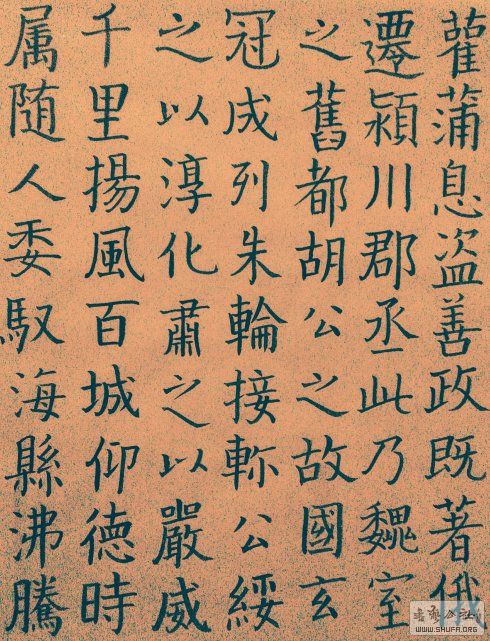 雚蒲息盗善政既著俄
遷潁川郡丞此乃魏室
之舊都胡公之故國玄
冠成列朱輪接軫公綏
之以淳化肅之以嚴威
千里揚風百城仰德時
属随人委馭海縣沸騰
WWW.SHUFA.ORG